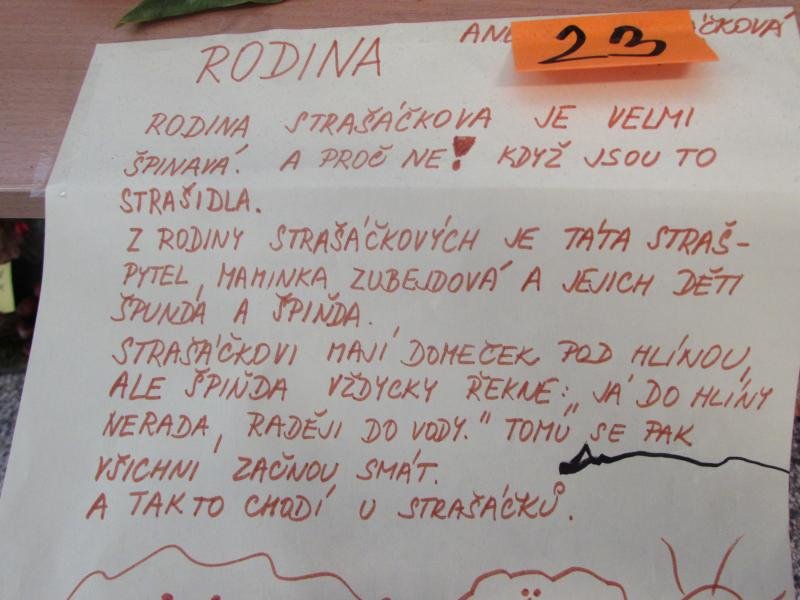 RODINA
23
RODINA STRAŠÁČKOVA JE VELMI
ŠPINAVÁ. A PROČ NE! KDYŽ JSOU TO
STRAŠIDLA.
Z RODINY STRAŠÁČKOVÝCH JE TÁTA STRAŠ-
PYTEL, MAMINKA ZUBEJDOVÁ A JEJICH DĚTI
ŠPUNĎA A ŠPIŇĎA.
STRAŠÁČKOVI MAJÍ DOMEČEK POD HLÍNOU,
ALE ŠPIŇĎA VŽDYCKY ŘEKNE: „JÁ DO HLÍNY
NERADA, RADĚJI DO VODY.“ TOMU SE PAK
VŠICHNI ZAČNOU SMÁT.
A TAK TO CHODÍ U STRAŠÁČKŮ.